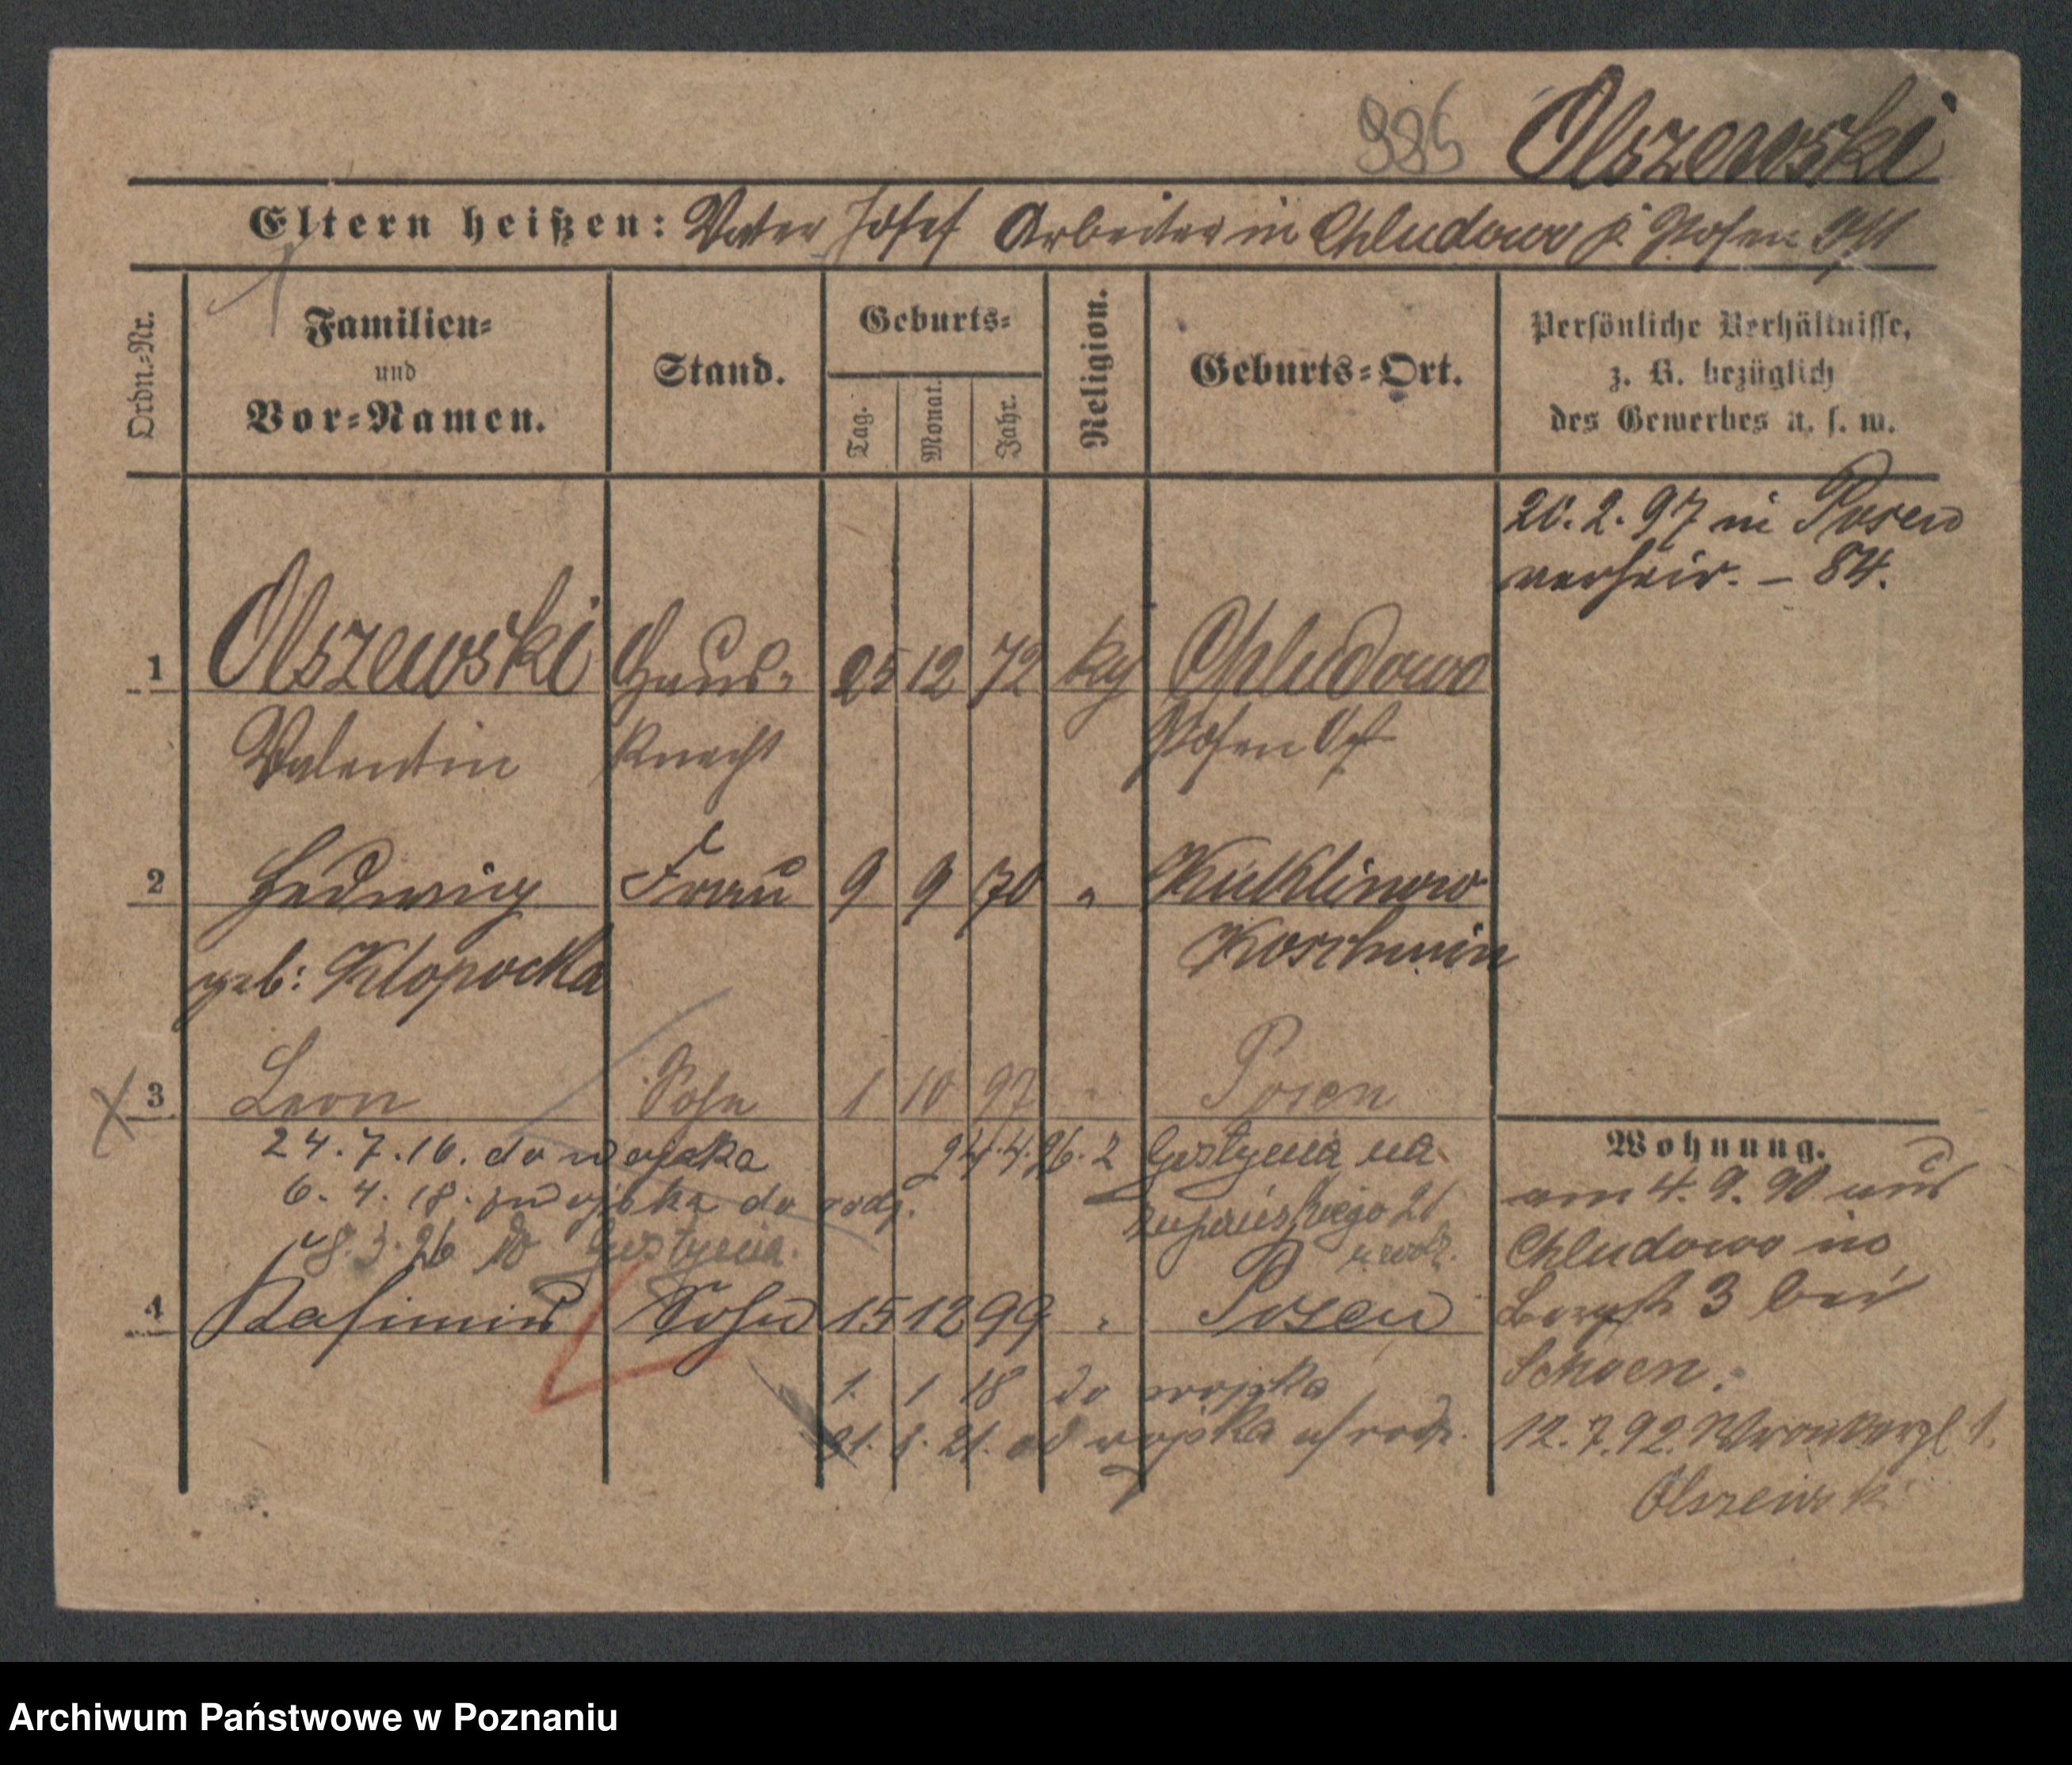 Olszewski
Eltern heißen: Vater Josef Arbeiter in Chludowo Posen
Ordn.=Nr.
Familien=
und
Vor=Namen.
Stand.
Geburts=
Tag.
Monat.
Jahr.
Religion.
Geburts=Ort.
Persönliche Verhältnisse,
z. B. bezüglich
des Gewerbes u. s. w.
20. 2. 97 in Posen
verheir. – 84.
1 Olszewski Haus- 25 12 72 Chludowo
Valentin Knecht Posen
2 Hedwig Frau 9 9 70 " Kuklinowo
geb: Klopocka Koschmin
3 Leon Sohn 1 10 97 " Posen
24.7.16. do wojska
6. 4. 18. z wojska do rodz.
8. 3. 26 do Gostynia.
24.4.26. z Gostynia na
21
4 Kasimir Sohn 15 12 99 " Posen
1. 1 18 do wojska
21. od wojska rodz.
Wohnung.
am 4. 9. 90 aus
Chludowo
3 bei
12. 7. 92. 1.
Olszewski
Archiwum Państwowe w Poznaniu